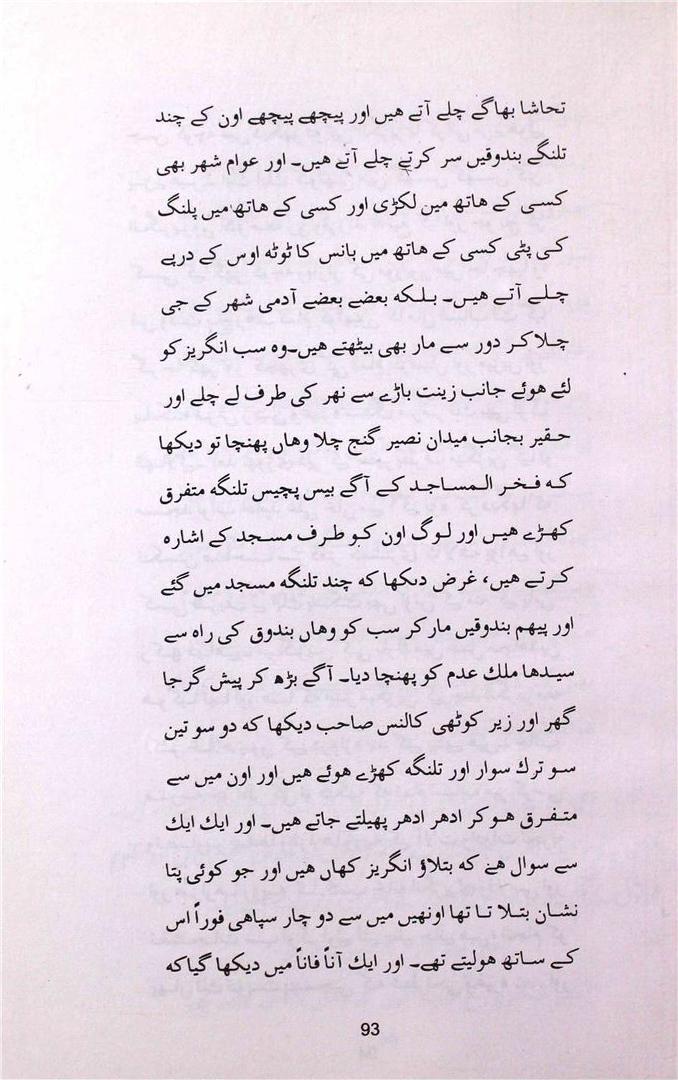 تحاشا بھاگے چلے آتے ھیں اور پیچھے پیچھے اون کے چند
تلنگے بندوقیں سر کرتے چلے آتے ھیں۔ اور عوام شھر بھی
کسی کے ھاتھ مین لکڑی اور کسی کے ھاتھ میں پلنگ
کی پٹی کسی کے ھاتھ میں بانس کا ٹوٹه اوس کے درپے
چلے آتے ھیں۔ بلکه بعضے بعضے آدمی شھر کے جی
چلاکر دور سے مار بھی بیٹھتے ھیں۔وہ سب انگریز کو
لئے ھوئے جانب زینت باڑے سے نھر کی طرف لے چلے اور
حقیر بجانب میدان نصیر گنج چلا وھاں پھنچا تو دیکھا
که فخر المساجد کے آگے بیس پچیس تلنگه متفرق
کھڑے ھیں اور لوگ اون کو طرف مسجد کے اشارہ
کرتے ھیں، غرض دیکھا که چند تلنگه مسجد میں گئے
اور پیھم بندوقیں مار کر سب کو وھاں بندوق کی راہ سے
سیدھا ملك عدم کو پھنچا دیا۔ آگے بڑھ کر پیش گرجا
گھر اور زیر کوٹھی کالنس صاحب دیکھا که دو سو تین
سو ترك سوار اور تلنگه کھڑے ھوئے ھیں اور اون میں سے
متفرق ھوکر ادھر ادھر پھیلتے جاتے ھیں۔ اور ایك ایك
سے سوال ھے که بتلاؤ انگریز کھاں ھیں اور جو کوئی پتا
نشان بتلا تا تھا اونھیں میں سے دو چار سپاھی فوراً اس
کے ساتھ ھولیتے تھے۔ اور ایك آناً فاناً میں دیکھا گیاکه
93